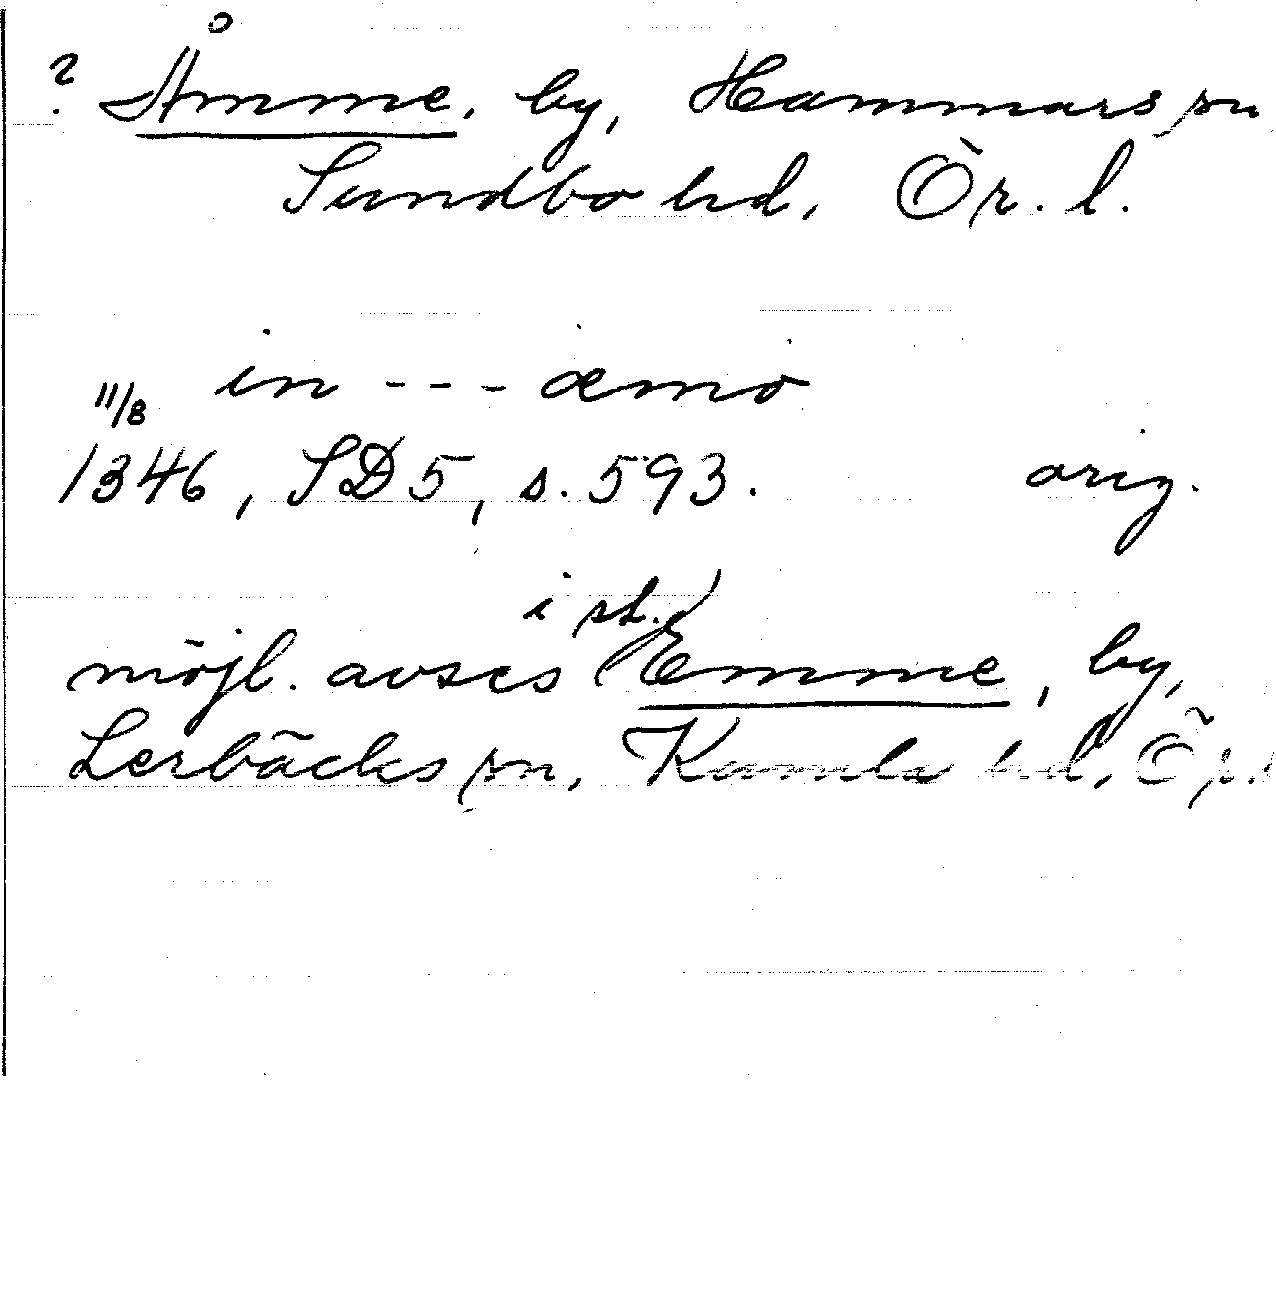 ? Åmme, by, Hammars sn
Sundbo hd, Ör. l.
in --- æmo
11/8
1346, SD 5, s. 593. orig.
i st.
möjl. avses Emme, by,
Lerbäcks sn, Kumla hd, Ör. l